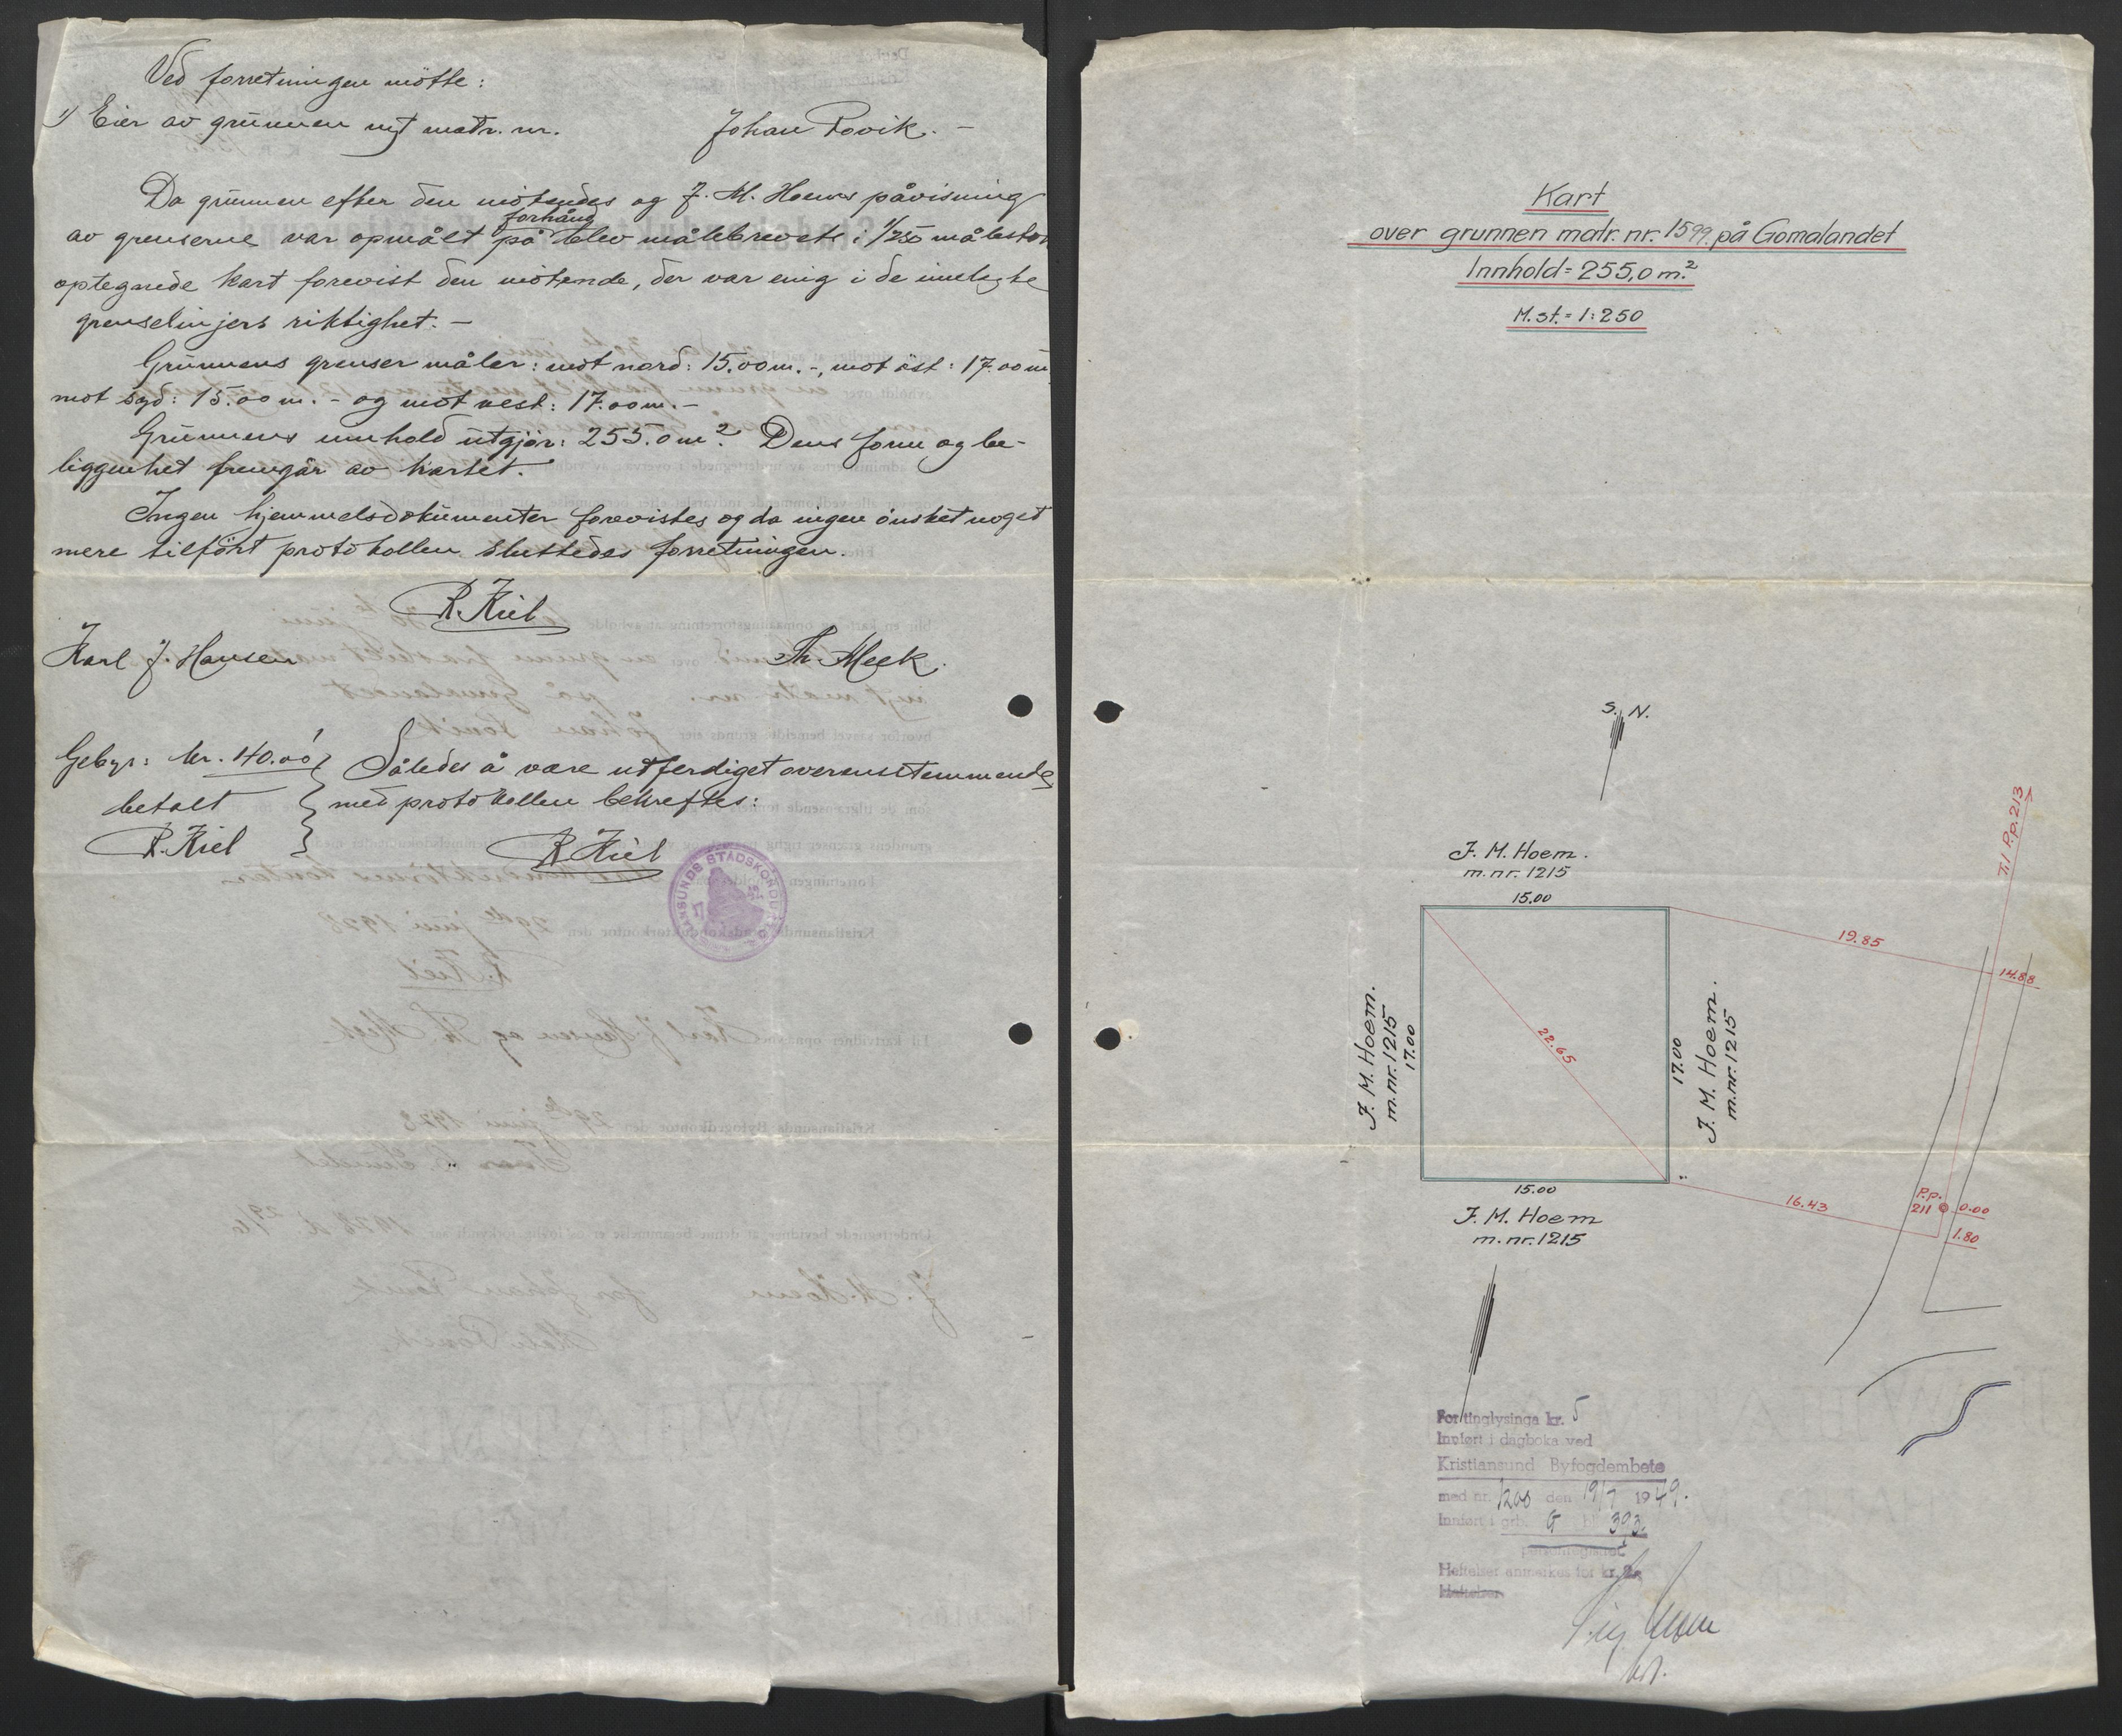 Ved forretningen mötte:
1) Eier av grunnen nyt matr. nr. Johan Rovik. –
Da grunnen efter den mötendes og J. M. Hoems påvisning
av grenserne var opmålt på forhånd blev målebrevets i 1/250 målestok
optegnede kart forevist den mötende, der var enig i de innlagte
grenselinjers riktighet. –
Grunnens grenser måler: mot nord: 15.00 m. -, mot öst: 17.00 m
mot syd: 15.00 m. - og mot vest: 17.00 m. –
Grunnens innhold utgjør: 255.0 m². Dens form og be-
liggenhet fremgår av kartet.
Ingen hjemmelsdokumenter forevistes og da ingen önsket noget
mere tilfört protokollen sluttedes forretningen.
R. Kiel
Karl J. Hansen Th. Meek.
Gebyr: kr. 40.00
betalt
R. Kiel
Således å være utferdiget overensstemmende
med protokollen bekreftes:
R Kiel
KRISTIANSUNDS STADSKONDUKTØR
Kart
over grunnen matr. nr. 1599. på Gomalandet
Innhold = 255,0 m.²
M. st. = 1:250
S. N.
J. M. Hoem.
m. nr. 1215
15.00
J. M. Hoem.
m. nr. 1215
17.00
22.65
17.00
J. M. Hoem.
m. nr. 1215
15.00
J. M. Hoem
m. nr. 1215
Til P.p. 213
19.85
14.88
16.43
P.p.
211
0.00
1.80
For tinglysinga kr. 5
Innført i dagboka ved
Kristiansund Byfogdembete
med nr. 1200 den 19/7 1949.
Innført i grb. G bl. 393.
Heftelser anmerkes for kr.
Heftelser